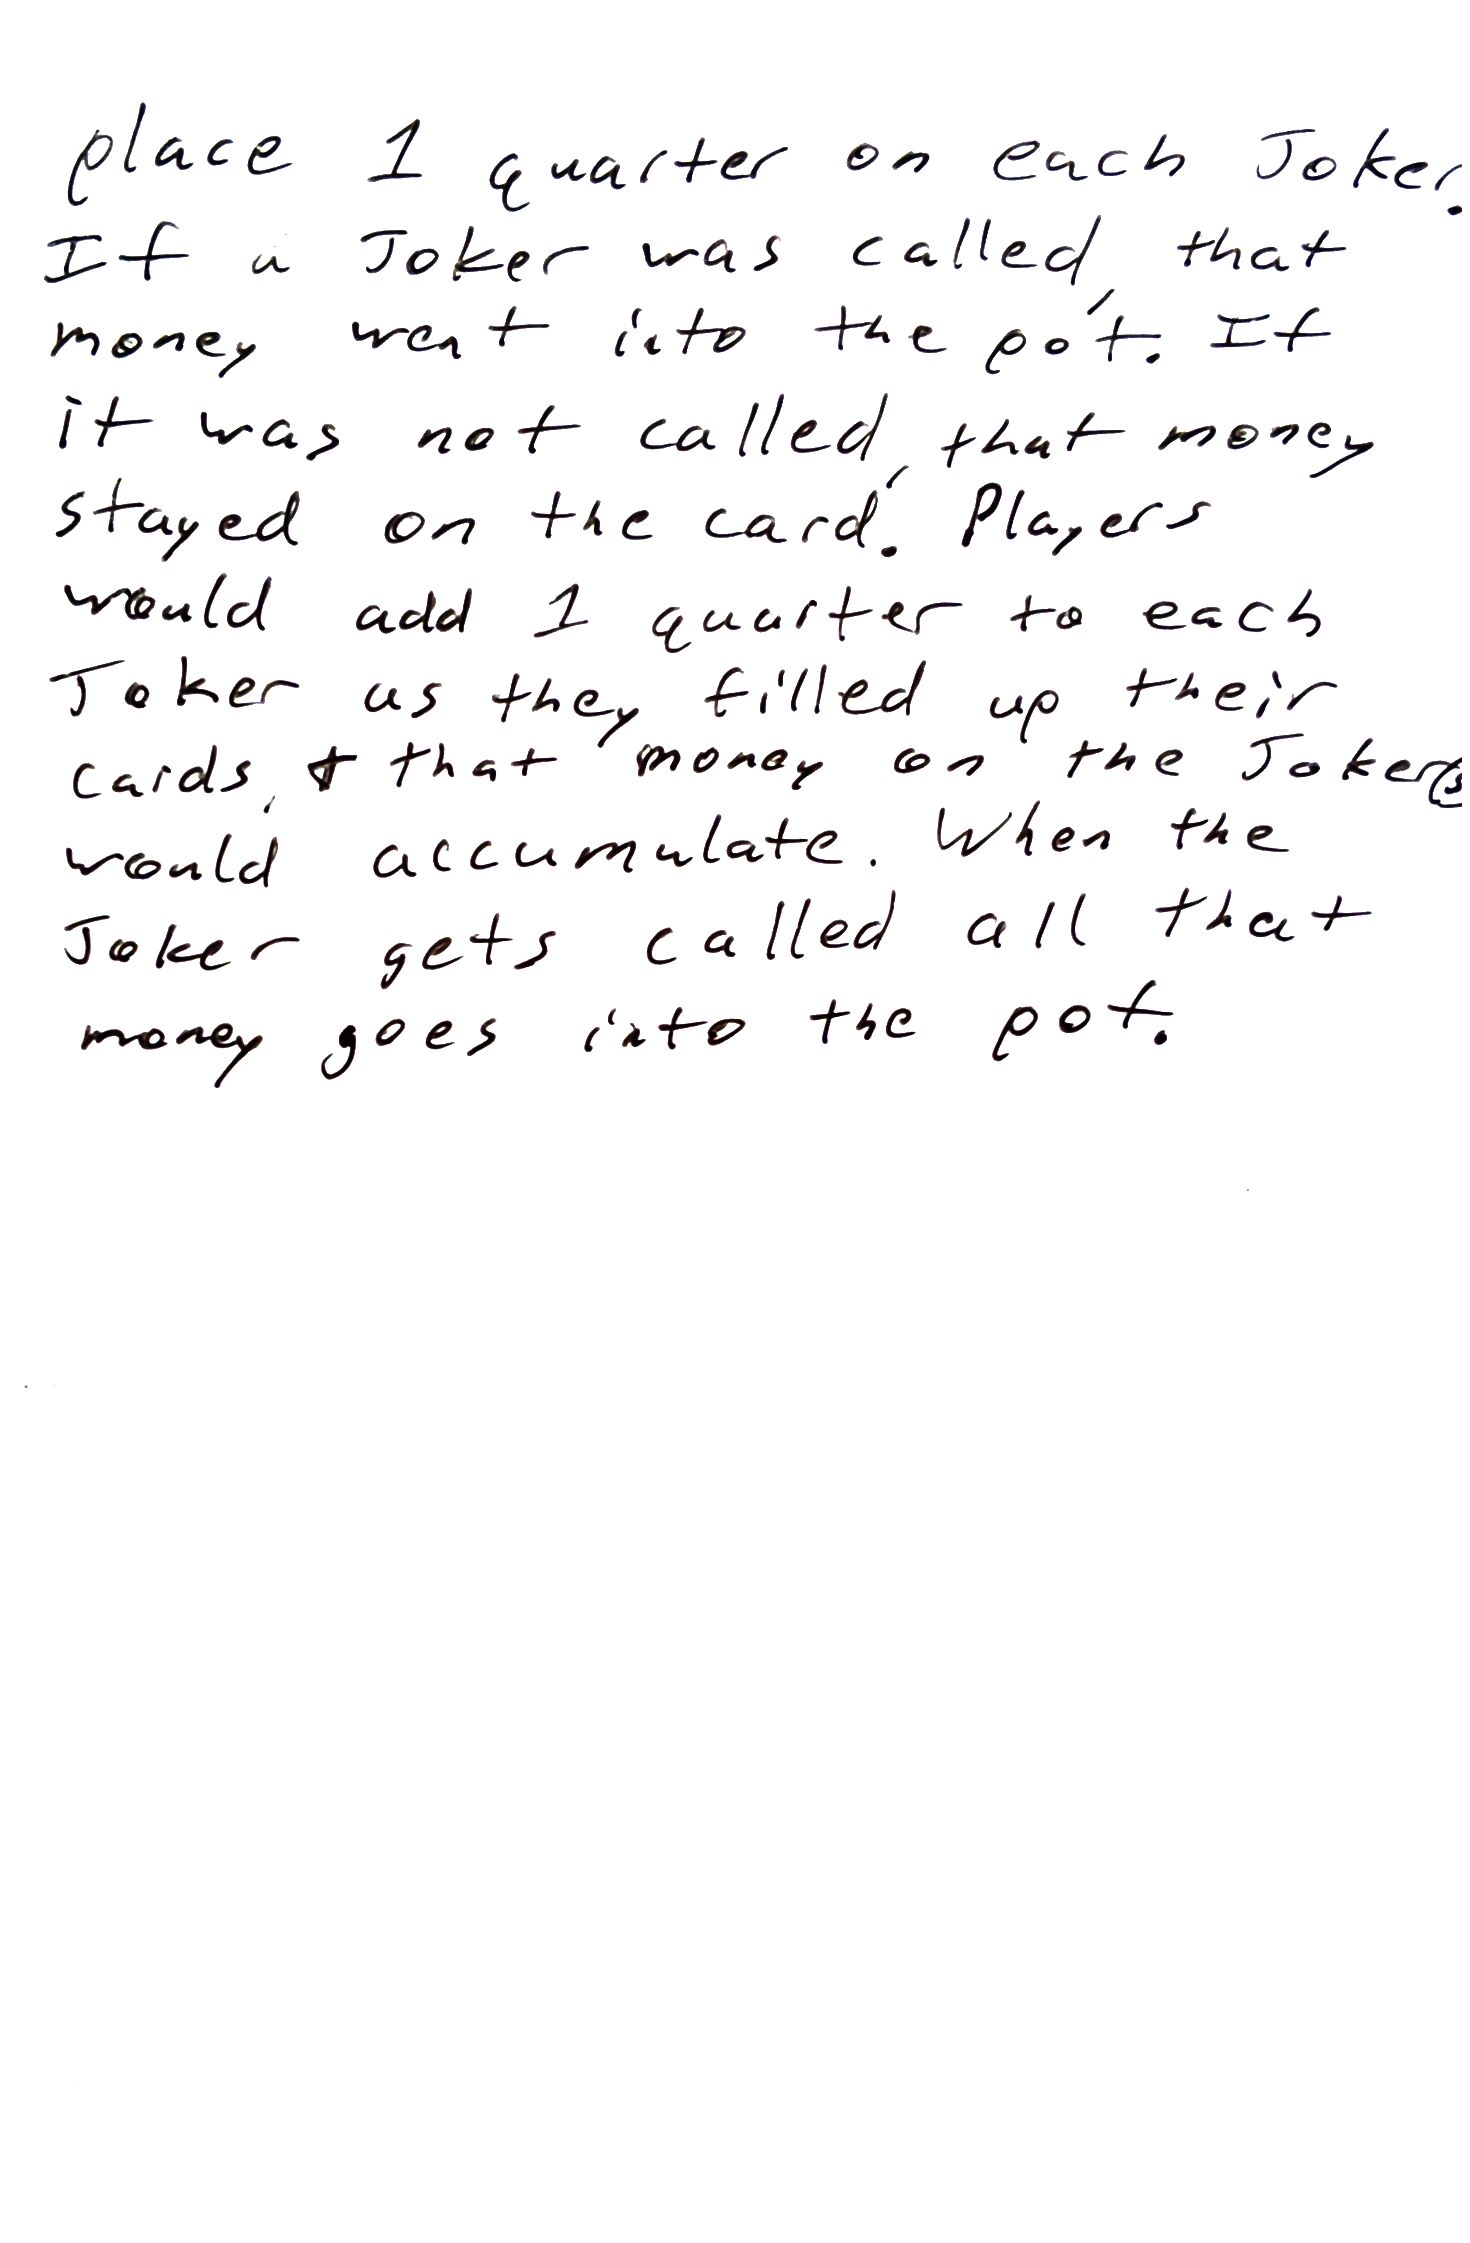 place 1 quarter on each Joker.
If a Joker was called, that
money went into the pot. If
it was not called, that money
stayed on the card. Players
would add 1 quarter to each
Joker as they filled up their
cards, + that money on the Joker(s
would accumulate. When the
Joker gets called all that
money goes into the pot.